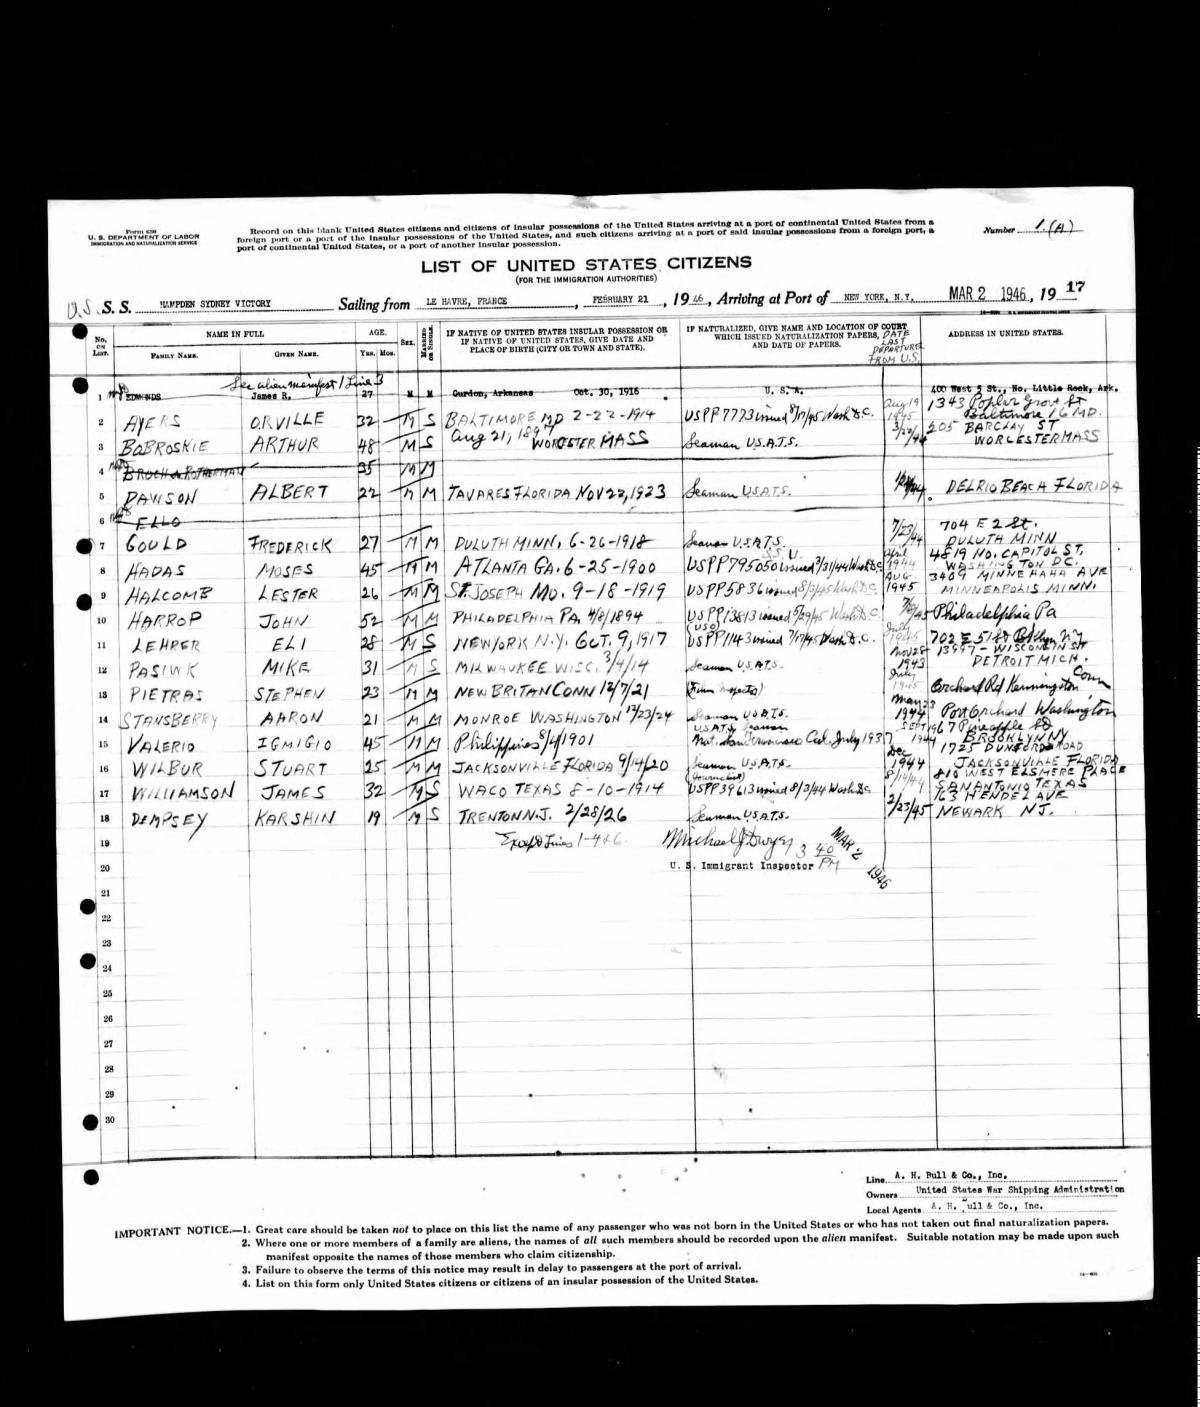 Form 630
U. S. DEPARTMENT OF LABOR
IMMIGRATION AND NATURALIZATION SERVICE
Record on this blank United States citizens and citizens of insular possessions of the United States arriving at a port of continental United States from a
foreign port or a port of the insular possessions of the United States, and such citizens arriving at a port of said insular possessions from a foreign port, a
port of continental United States, or a port of another insular possession.
Number 1 (A)
LIST OF UNITED STATES CITIZENS
(FOR THE IMMIGRATION AUTHORITIES)
U.S. S. S. HAMPDEN SYDNEY VICTORY Sailing from LE HAVRE, FRANCE, FEBRUARY 21, 1946, Arriving at Port of NEW YORK, N.Y. MAR 2 1946, 19 17
No. ON LIST. NAME IN FULL AGE. Sex. MARRIED OR SINGLE. IF NATIVE OF UNITED STATES INSULAR POSSESSION OR IF NATIVE OF UNITED STATES, GIVE DATE AND PLACE OF BIRTH (CITY OR TOWN AND STATE). IF NATURALIZED, GIVE NAME AND LOCATION OF COURT WHICH ISSUED NATURALIZATION PAPERS, AND DATE OF PAPERS. DATE LAST DEPARTURE FROM U.S. ADDRESS IN UNITED STATES.
FAMILY NAME. GIVEN NAME. Yrs. Mos.
See alien manifest 1 Line 3
1 EDMONDS James R. 27 M M Gurdon, Arkansas Oct. 30, 1916 U. S. A. 400 West 5 St., No. Little Rock, Ark.
2 AYERS ORVILLE 32 M S BALTIMORE MD 2-22-1914 USPP 7773 issued 8/17/45 Wash D.C. Aug 19 1945 1343 Poplar Grove St Baltimore 16 MD.
3 BOBROSKIE ARTHUR 48 M S Aug 21, 1897 WORCESTER MASS Seaman U.S.A.T.S. 3/22/44 205 BARCLAY ST WORCESTER MASS
4 35 M M
5 DAWSON ALBERT 22 M M TAVARES FLORIDA NOV 22, 1923 Seaman USATS. DELRIO BEACH FLORIDA
6 ELLO
7 GOULD FREDERICK 27 M M DULUTH MINN. 6-26-1918 Seaman U.S.A.T.S. 7/23/44 704 E 2 St. DULUTH MINN
8 HADAS MOSES 45 M M ATLANTA GA. 6-25-1900 USPP 795050 issued 3/31/44 Wash D.C. April 1944 4819 NO. CAPITOL ST. WASHINGTON DC.
9 HALCOMB LESTER 26 M M ST. JOSEPH MO. 9-18-1919 USPP 5836 issued 8/3/45 Wash D.C. AUG 1945 3409 MINNEHAHA AVE MINNEAPOLIS MINN.
10 HARROP JOHN 52 M M PHILADELPHIA PA. 4/8/1894 USPP 13813 issued 5/29/45 Wash D.C. Philadelphia Pa
11 LEHRER ELI 28 M S NEW YORK N.Y. OCT. 9, 1917 (USO) USPP 1143 issued 7/17/45 Wash D.C. July 1945 702 E 51 St Bklyn NY
12 PASIWK MIKE 31 M S MILWAUKEE WISC. 3/4/14 Seaman U.S.A.T.S. Nov 28 1943 13997 - WISCONSIN ST DETROIT MICH.
13 PIETRAS STEPHEN 23 M M NEW BRITAN CONN 12/7/21 July 1945 Orchard Rd Kennsington, Conn
14 STANSBERRY AARON 21 M M MONROE WASHINGTON 12/23/24 Seaman U.S.A.T.S. May 23 1944 Port Orchard Washington
15 VALERIO IGMIGIO 45 M M Philippines 8/4/1901 U.S.A.T.S. Seaman Nat. San Francisco Cal. July 1937 SEPT 19 1944 67 Pineapple St BROOKLYN NY
16 WILBUR STUART 25 M M JACKSONVILLE FLORIDA 9/14/20 Seaman U.S.A.T.S. Dec 1944 1725 DUNSFORD ROAD JACKSONVILLE FLORIDA
17 WILLIAMSON JAMES 32 M S WACO TEXAS 8-10-1914 (Journalist) USPP 39613 issued 8/3/44 Wash D.C. 8/14/44 810 WEST ELSMERE PLACE SANANTONIO TEXAS
18 DEMPSEY KARSHIN 19 M S TRENTON N.J. 2/28/26 Seaman U.S.A.T.S. 2/23/45 163 HENDEL AVE NEWARK NJ.
19 Except Lines 1-4+6. Michael J Dwyer 3 40 PM MAR 2 1946
20 U. S. Immigrant Inspector
21
22
23
24
25
26
27
28
29
30
Line A. H. Bull & Co., Inc.
Owners United States War Shipping Administration
Local Agents A. H. Bull & Co., Inc.
IMPORTANT NOTICE.—1. Great care should be taken not to place on this list the name of any passenger who was not born in the United States or who has not taken out final naturalization papers.
2. Where one or more members of a family are aliens, the names of all such members should be recorded upon the alien manifest. Suitable notation may be made upon such
manifest opposite the names of those members who claim citizenship.
3. Failure to observe the terms of this notice may result in delay to passengers at the port of arrival.
4. List on this form only United States citizens or citizens of an insular possession of the United States.